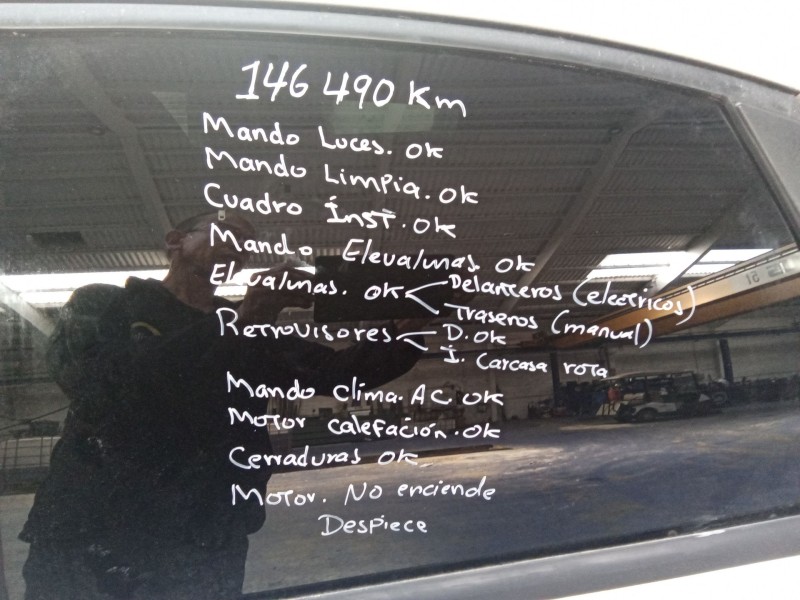 146 490 Km
Mando Luces. ok
Mando Limpia. ok
Cuadro Inst. ok
Mando Elevalunas ok
Elevalunas. ok Delanteros (electricos)
Traseros (manual)
Retrovisores D. ok
I. Carcasa rota
Mando clima. AC ok
Motor calefación. ok
Cerraduras ok
Motor. No enciende
Despiece